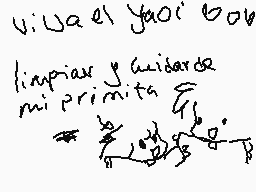 viva el yaoi bob
limpiar y cuidar de
mi primita